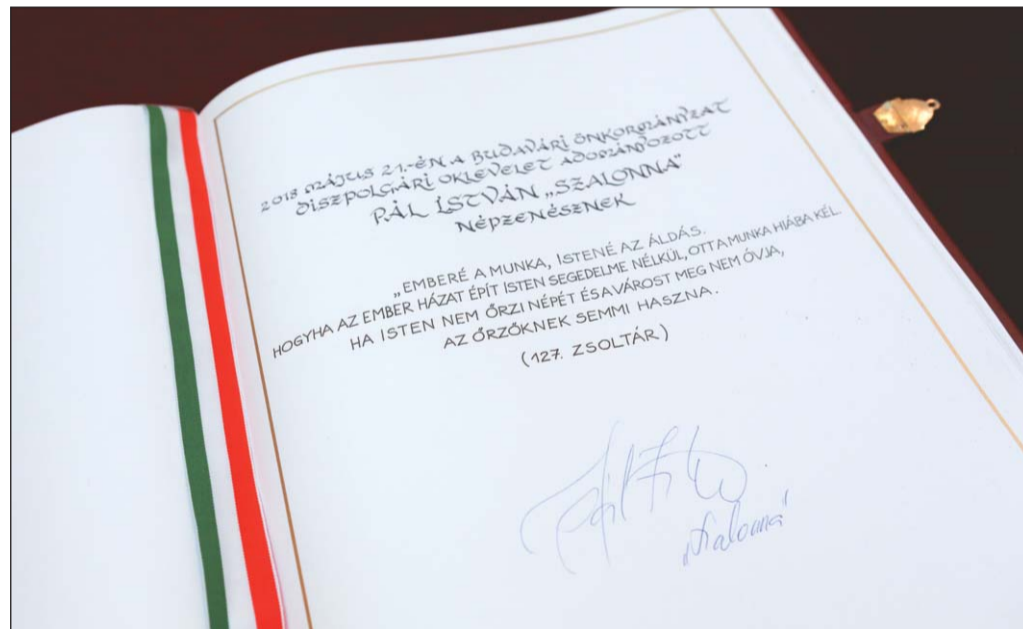 2018 MÁJUS 21.-ÉN A BUDAVÁRI ÖNKORMÁNYZAT
DÍSZPOLGÁRI OKLEVELET ADOMÁNYOZOTT
PÁL ISTVÁN „SZALONNA”
NÉPZENÉSZNEK
„EMBERÉ A MUNKA, ISTENÉ AZ ÁLDÁS.
HOGYHA AZ EMBER HÁZAT ÉPÍT ISTEN SEGEDELME NÉLKÜL, OTT A MUNKA HIÁBA KÉL.
HA ISTEN NEM ŐRZI NÉPÉT ÉS A VÁROST MEG NEM ÓVJA,
AZ ŐRZŐKNEK SEMMI HASZNA.
(127. ZSOLTÁR)
„Szalonna”